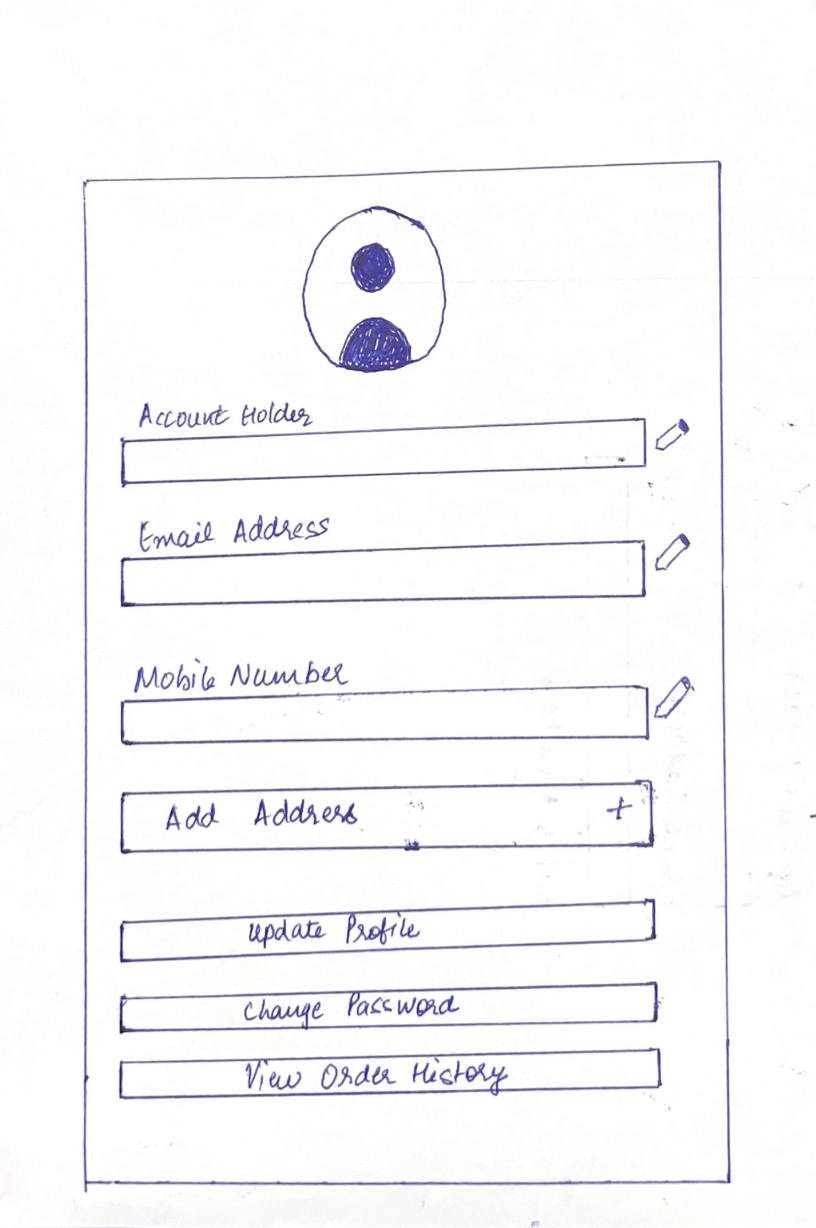 Account Holder
Email Address
Mobile Number
Add Address +
Update Profile
Change Password
View Order History